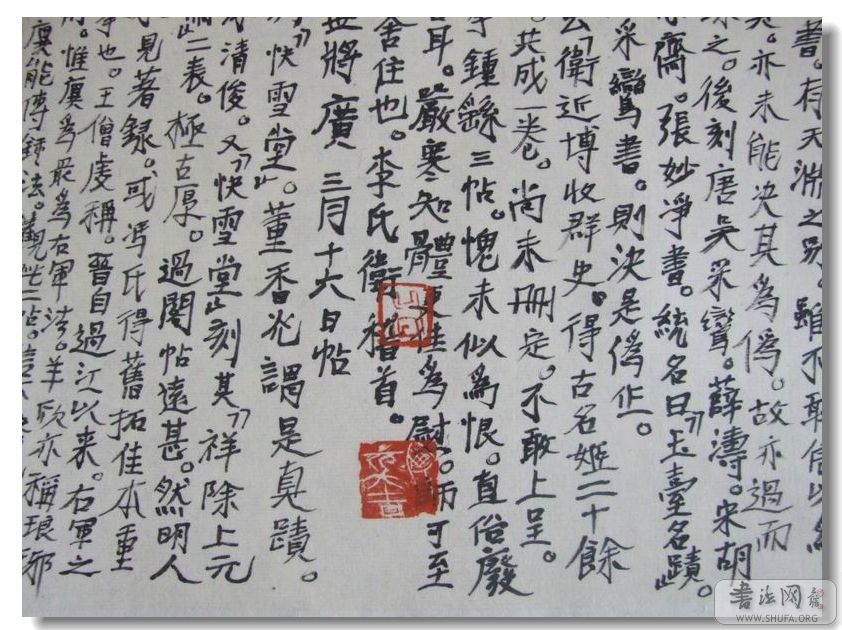 書。有天淵之别。雖不敢信以為
矣。亦未能决其為僞。故亦過而
之。後刻唐吳采鸞。薛濤。宋胡
齋。張妙淨書。統名曰『玉臺名蹟』。
采鸞書。則决是僞作。
云『衛近博收群史。得古名姬二十餘
共成一卷。尚未册定。不敢上呈。
鍾繇三帖。愧未似為恨。直俗廢
耳。嚴寒知體更佳為慰。可至
舍住也。李氏衛稽首。
將廣 三月十六日帖
『快雪堂』。董香光謂是真蹟。
清俊。又『快雪堂』刻其『祥除上元
二表。極古厚。過閣帖遠甚。然明人
見著録。或馮氏得舊拓佳本重
也。王僧虔稱。晉自過江以来。右軍之
惟廙為最為右軍法。羊欣亦稱琅邪
廙能傳鍾法。觀此二帖。
書法网
WWW.SHUFA.ORG